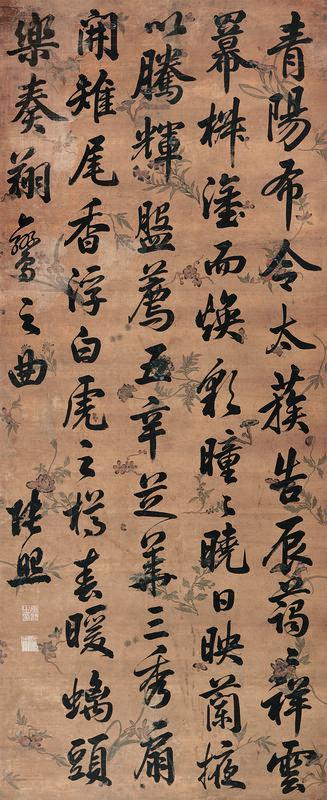 青陽布令太蔟告辰藹〻祥雲
羃椒塗而煥彩曈〻曉日映蘭掖
以騰輝盤薦五辛芝華三秀扇
開雉尾香浮白虎之樽春暖螭頭
樂奏翔鸞之曲
張照